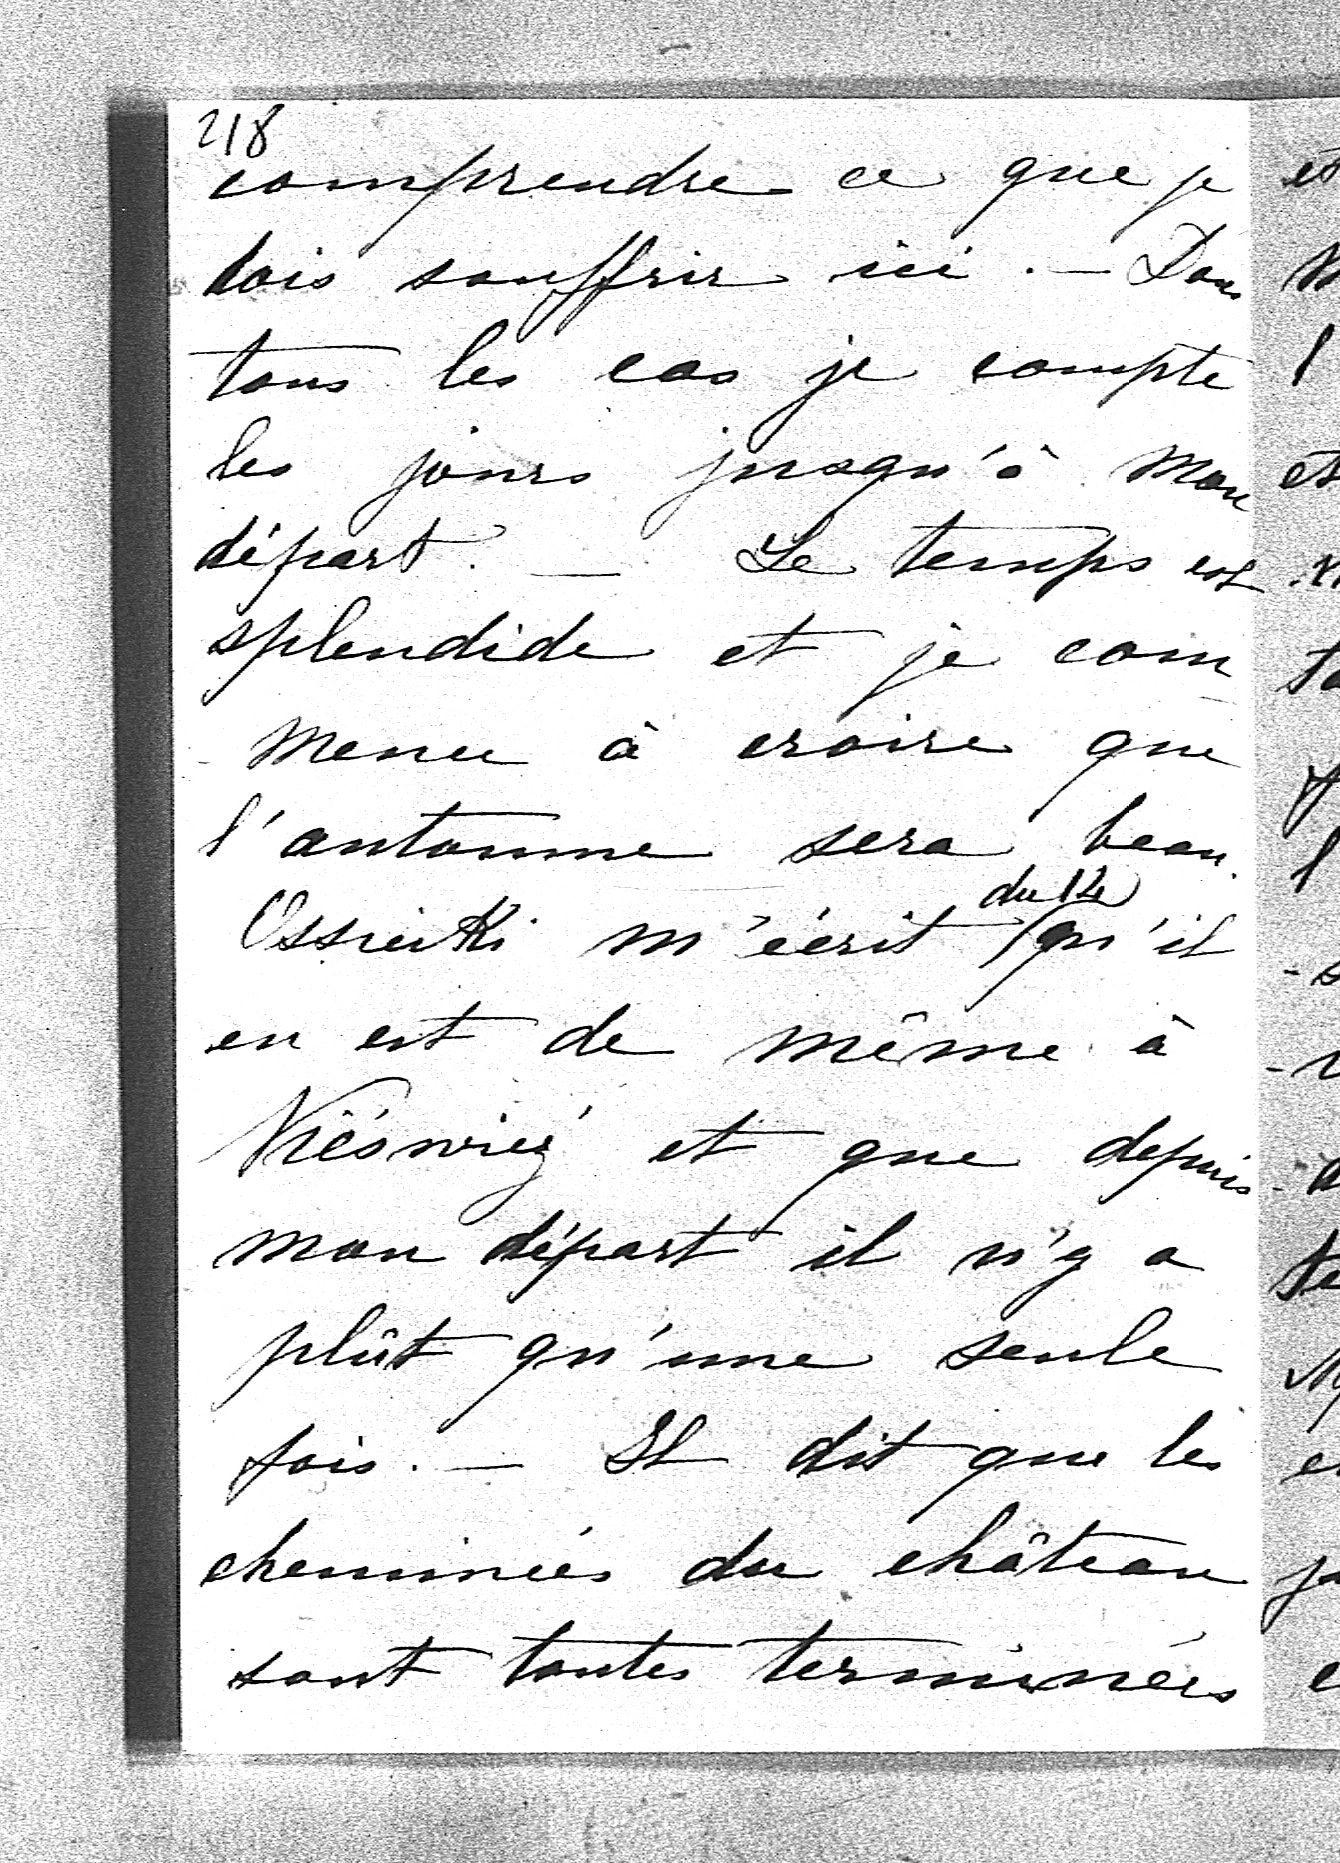 218
comprendre ce que je
dois souffrir ici. — Dans
tous les cas je compte
les jours jusqu'à mon
départ. — Le temps est
splendide et je com
mence à croire que
l'automne sera beau.
du 12
m'écrit qu'il
en est de même à
Niéświeź et que depuis
mon départ il n'y a
plût qu'une seule
fois. — Il dit que les
cheminées du château
sont toutes terminées